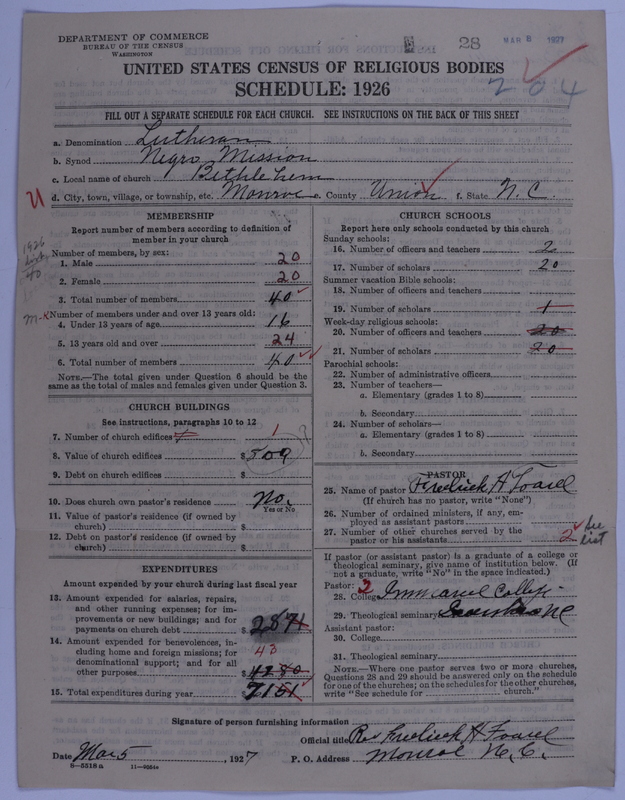 DEPARTMENT OF COMMERCE
BUREAU OF THE CENSUS
WASHINGTON
28 MAR 8 1927
UNITED STATES CENSUS OF RELIGIOUS BODIES
SCHEDULE: 1926
204
FILL OUT A SEPARATE SCHEDULE FOR EACH CHURCH. SEE INSTRUCTIONS ON THE BACK OF THIS SHEET
a. Denomination Lutheran
b. Synod Negro Mission
c. Local name of church Bethlehem
d. City, town, village, or township, etc. Monroe e. County Union f. State N. C.
MEMBERSHIP
Report number of members according to definition of
member in your church
1926
40
Number of members, by sex:
1. Male 20
2. Female 20
3. Total number of members 40
Number of members under and over 13 years old:
4. Under 13 years of age 16
5. 13 years old and over 24
6. Total number of members 40
NOTE.—The total given under Question 6 should be
the same as the total of males and females given under Question 3.
CHURCH BUILDINGS
See instructions, paragraphs 10 to 12
7. Number of church edifices 1
8. Value of church edifices $ 500
9. Debt on church edifices $
10. Does church own pastor's residence No.
Yes or No
11. Value of pastor's residence (if owned by
church) $
12. Debt on pastor's residence (if owned by
church) $
EXPENDITURES
Amount expended by your church during last fiscal year
13. Amount expended for salaries, repairs,
and other running expenses; for im-
provements or new buildings; and for
payments on church debt $ 2871
14. Amount expended for benevolences, in-
cluding home and foreign missions; for
denominational support; and for all
other purposes $ 4280
43
15. Total expenditures during year $ 7151
CHURCH SCHOOLS
Report here only schools conducted by this church
Sunday schools:
16. Number of officers and teachers 2
17. Number of scholars 20
Summer vacation Bible schools:
18. Number of officers and teachers
19. Number of scholars 1
Week-day religious schools:
20. Number of officers and teachers 20
21. Number of scholars 20
Parochial schools:
22. Number of administrative officers
23. Number of teachers—
a. Elementary (grades 1 to 8)
b. Secondary
24. Number of scholars—
a. Elementary (grades 1 to 8)
b. Secondary
PASTOR
25. Name of pastor Fredrick H Foard
(If church has no pastor, write "None")
26. Number of ordained ministers, if any, em-
ployed as assistant pastors
27. Number of other churches served by the
pastor or his assistants 2 See list
If pastor (or assistant pastor) is a graduate of a college or
theological seminary, give name of institution below. (If
not a graduate, write "No" in the space indicated.)
Pastor: 2
28. College Immanuel College
29. Theological seminary
Assistant pastor:
30. College
31. Theological seminary
NOTE.—Where one pastor serves two or more churches,
Questions 28 and 29 should be answered only on the schedule
for one of the churches; on the schedules for the other churches,
write "See schedule for church."
Signature of person furnishing information
Official title Rev Fredrick H Foard
Date Mar 5, 1927 P. O. Address Monroe N. C.
8-5518 a 11-9564